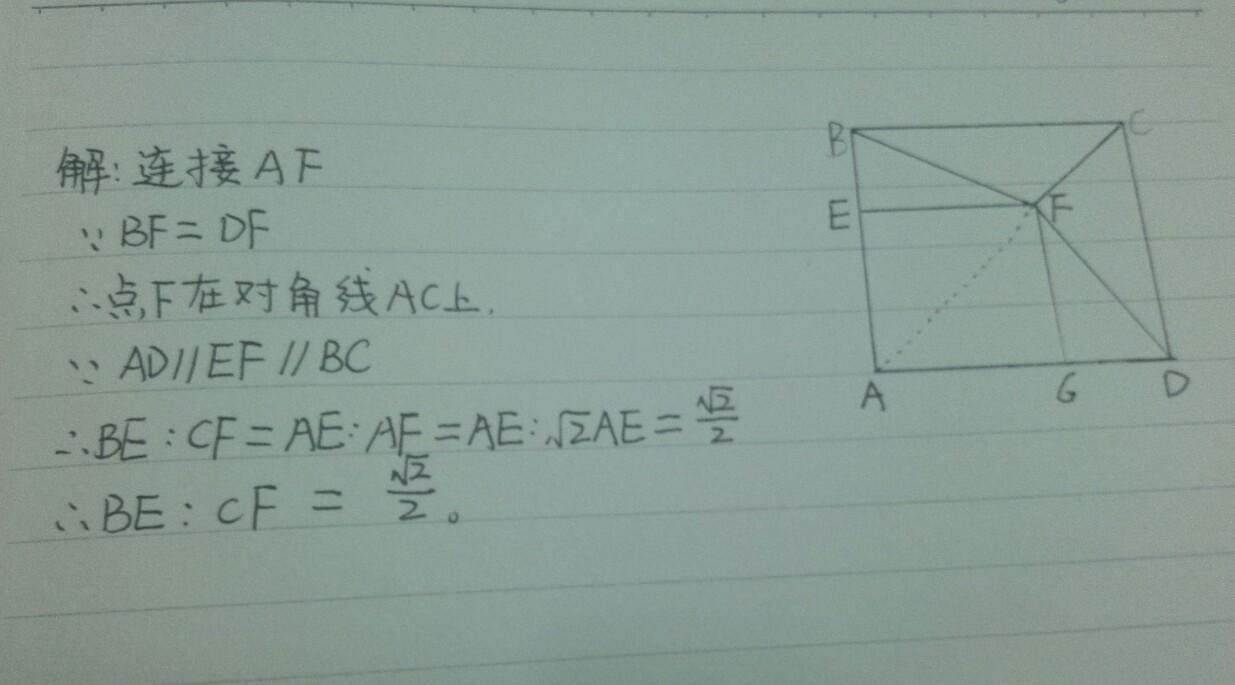 解:连接AF
∵BF=DF
∴点F在对角线AC上.
∵AD//EF//BC
∴BE:CF=AE:AF=AE:√2AE=√2/2
∴BE:CF=√2/2。
B
C
E
F
A
G
D